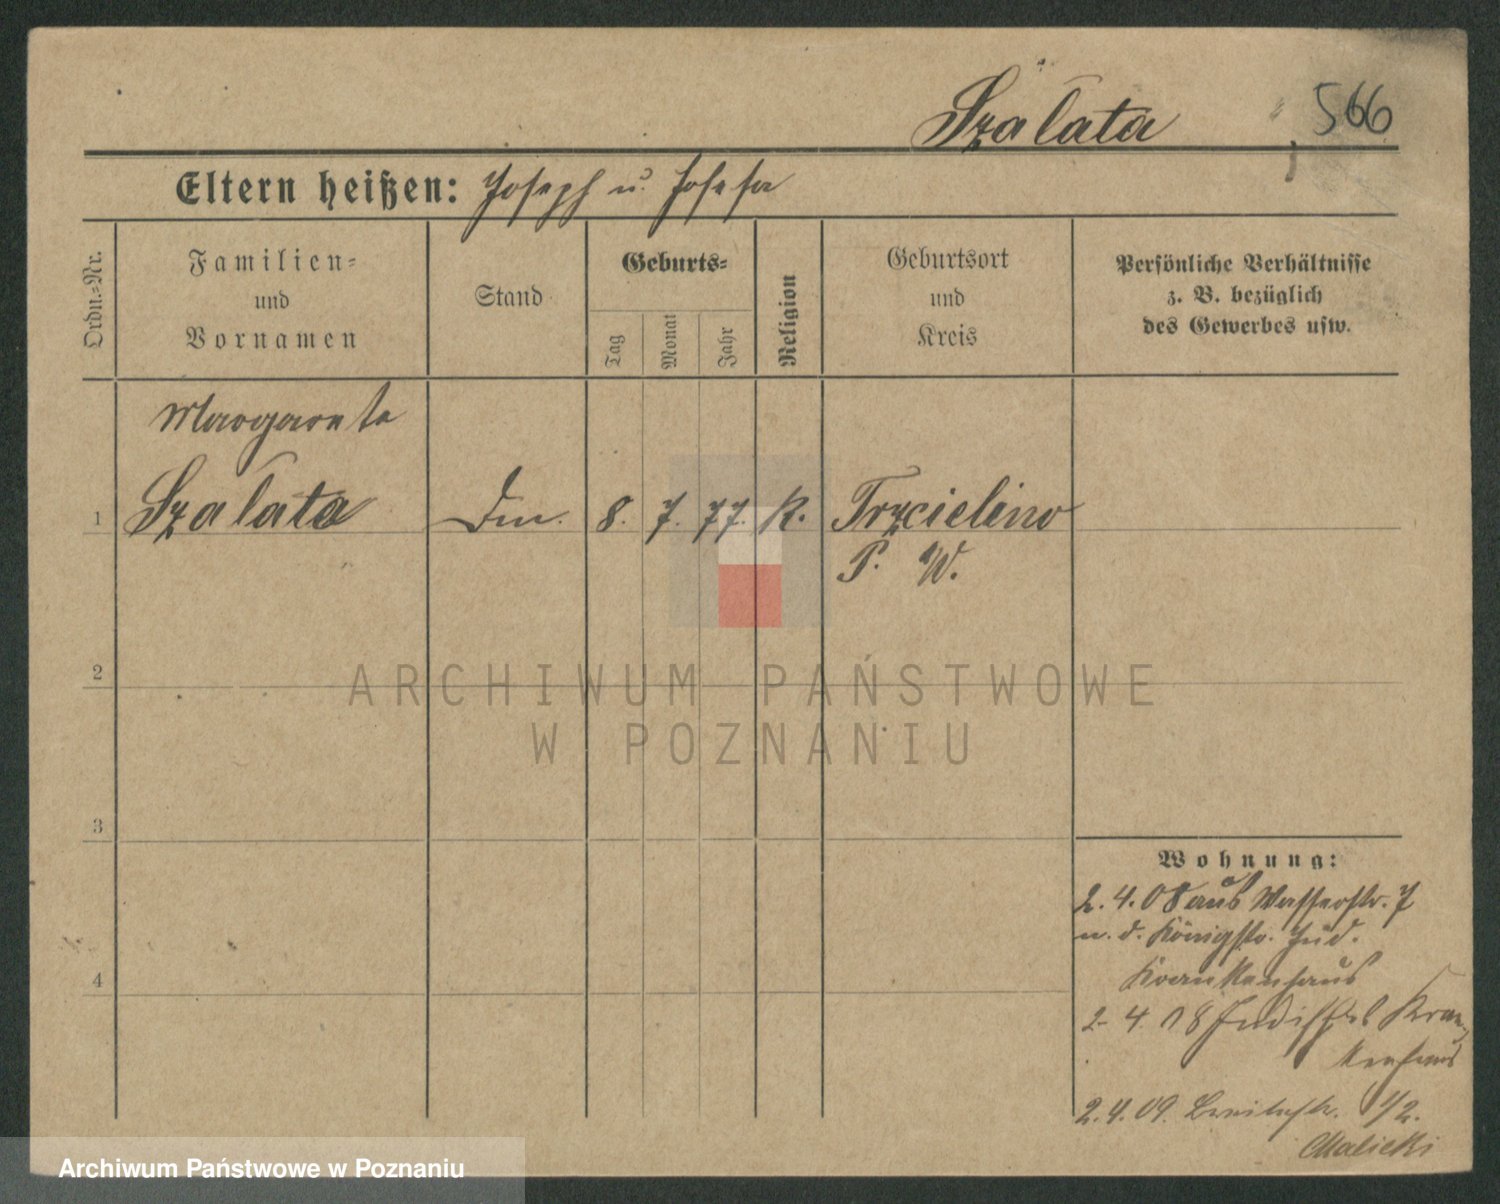 Szałata
566
Eltern heißen: Joseph u. Josefa
Ordn.-Nr.
Familien-
und
Vornamen
Stand
Geburts-
Tag
Monat
Jahr
Religion
Geburtsort
und
Kreis
Persönliche Verhältnisse
z. B. bezüglich
des Gewerbes usw.
Margarete
1 Szałata Dm. 8. 7. 77. K. Trzcielino
P. W.
2
ARCHIWUM PAŃSTWOWE
W POZNANIU
3
Wohnung:
2. 4. 08 aus Wasserstr. 7
n. d. Königstr. Jüd.
Krankenhaus
4
2. 4. 08 Jüdisches Kran-
kenhaus
2. 4. 09. Breitestr. 1/2.
Malicki
Archiwum Państwowe w Poznaniu